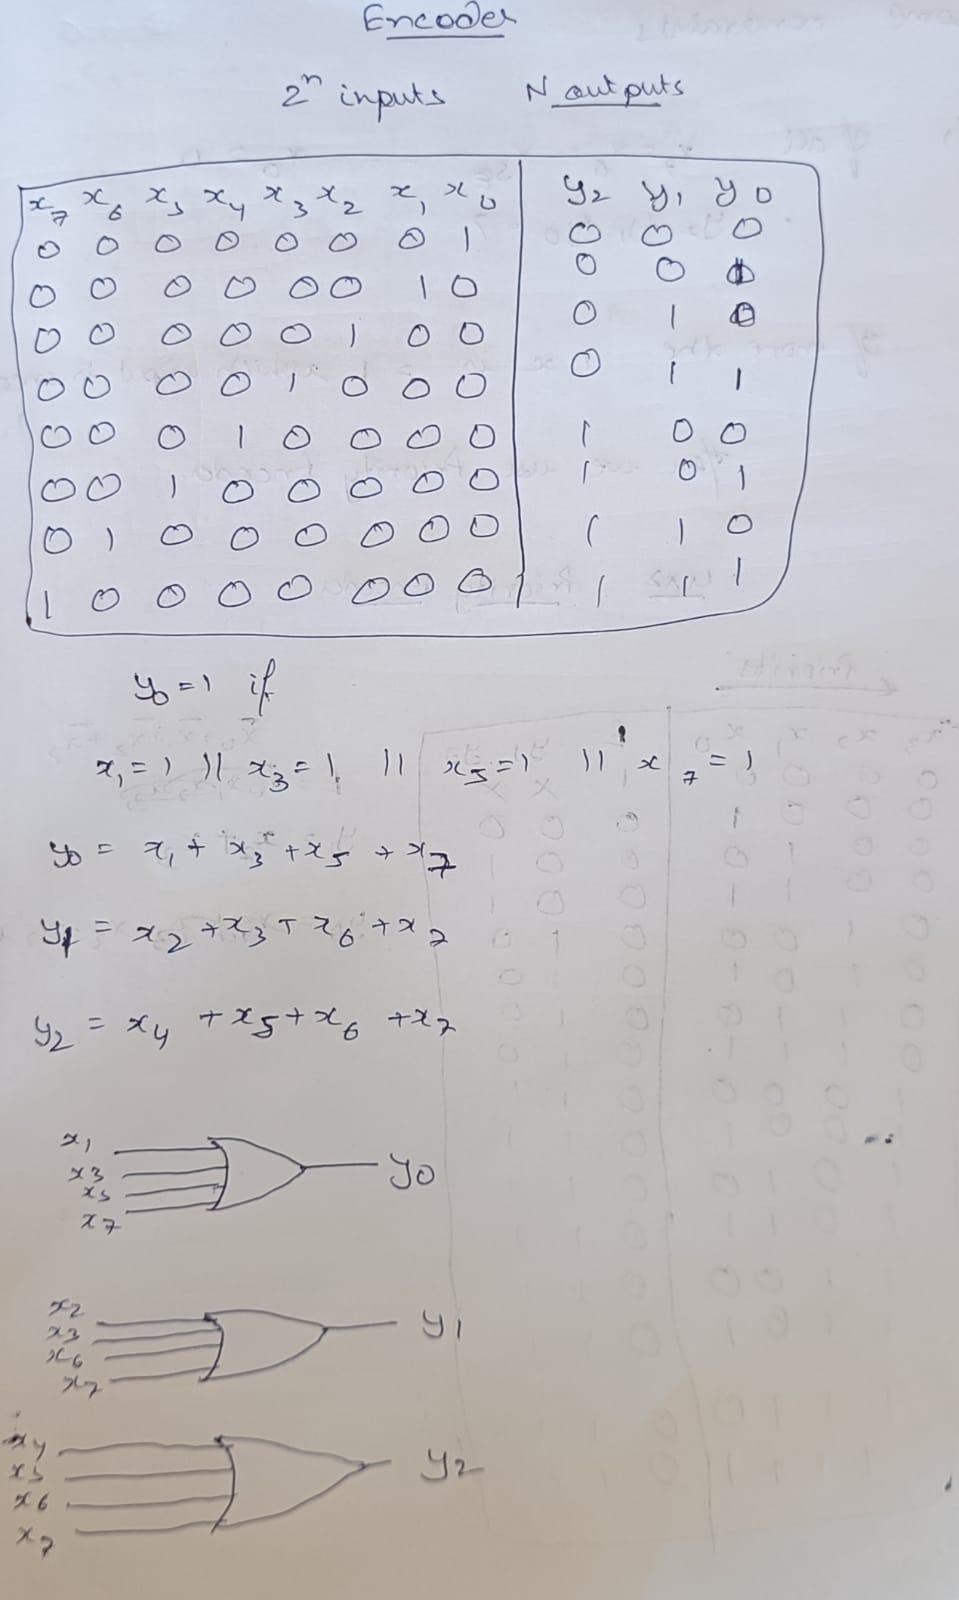 Encoder
2ⁿ inputs N outputs
x₇ x₆ x₅ x₄ x₃ x₂ x₁ x₀ y₂ y₁ y₀
0 0 0 0 0 0 0 1 0 0 0
0 0 0 0 0 0 1 0 0 0
0 0 0 0 0 1 0 0 0 1 0
0 0 0 0 1 0 0 0 0 1 1
0 0 0 1 0 0 0 0 1 0 0
0 0 1 0 0 0 0 0 1 0 1
0 1 0 0 0 0 0 0 1 1 0
1 0 0 0 0 0 0 0 1 1 1
y₀ = 1 if
x₁ = 1 || x₃ = 1 || x₅ = 1 || x₇ = 1
y₀ = x₁ + x₃ + x₅ + x₇
y₁ = x₂ + x₃ + x₆ + x₇
y₂ = x₄ + x₅ + x₆ + x₇
x₁
x₃ y₀
x₅
x₇
x₂
x₃ y₁
x₆
x₇
x₄
x₅ y₂
x₆
x₇